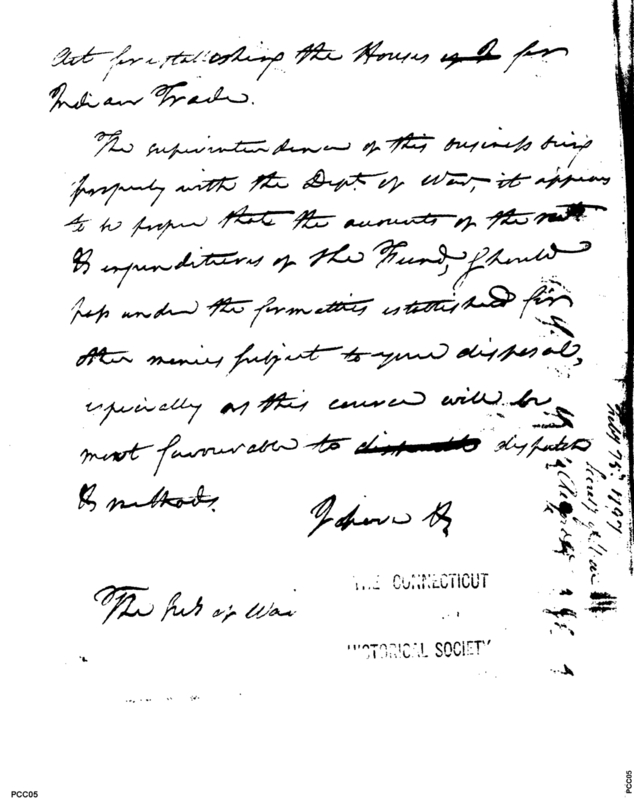 Act for establishing the Houses for
Indian Trade.
The superintendence of this business being
properly with the Dept. of War, it appears
to be proper that the accounts of the
& expenditures of the Fund, should
pass under the formalities established for
other monies subject to your disposal,
especially as this course will be
most favourable to dispatch
& method.
I have &c
The Sec. of War
THE CONNECTICUT
HISTORICAL SOCIETY
PCC05
PCC05
1797
Secretary of War